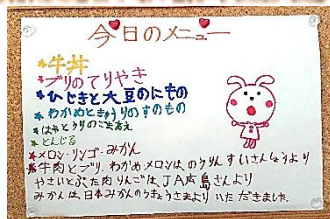 今日のメニュー
*牛丼
*ブリのてりやき
*ひじきと大豆のにもの
*わかめときゅうりのすのもの
*とんじる
*メロン・リンゴ・みかん
*牛肉とブリ、わかめ、メロンは、のうりんすいさんしょうより
やさいとぶた肉、りんごは、JA広島さんより
みかんは、日本みかんのうきょうさまより いただきました。